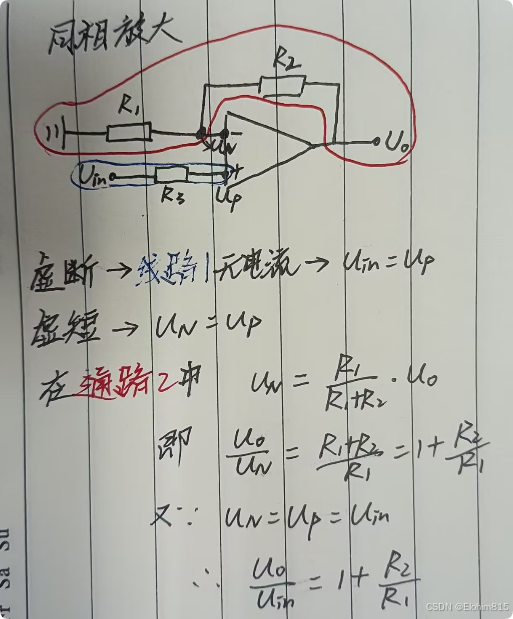 同相放大
R₂
R₁
U_N −
U₀
U_in
+
R₃
U_p
虚断→线路1无电流→U_in=U_p
虚短→U_N=U_p
在通路2中 U_N=R₁/(R₁+R₂)·U₀
即 U₀/U_N=(R₁+R₂)/R₁=1+R₂/R₁
又∵ U_N=U_p=U_in
∴ U₀/U_in=1+R₂/R₁
r Sa Su
CSDN @Elohim815